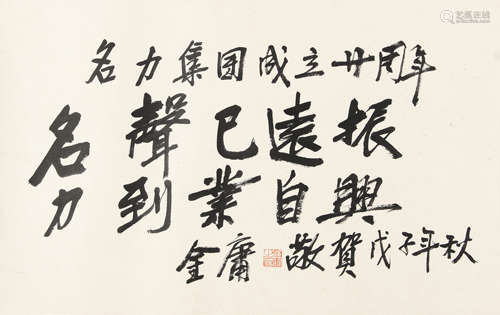 名力集团成立廿周年
名聲已遠振
力到業自興
金庸敬賀戊子年秋